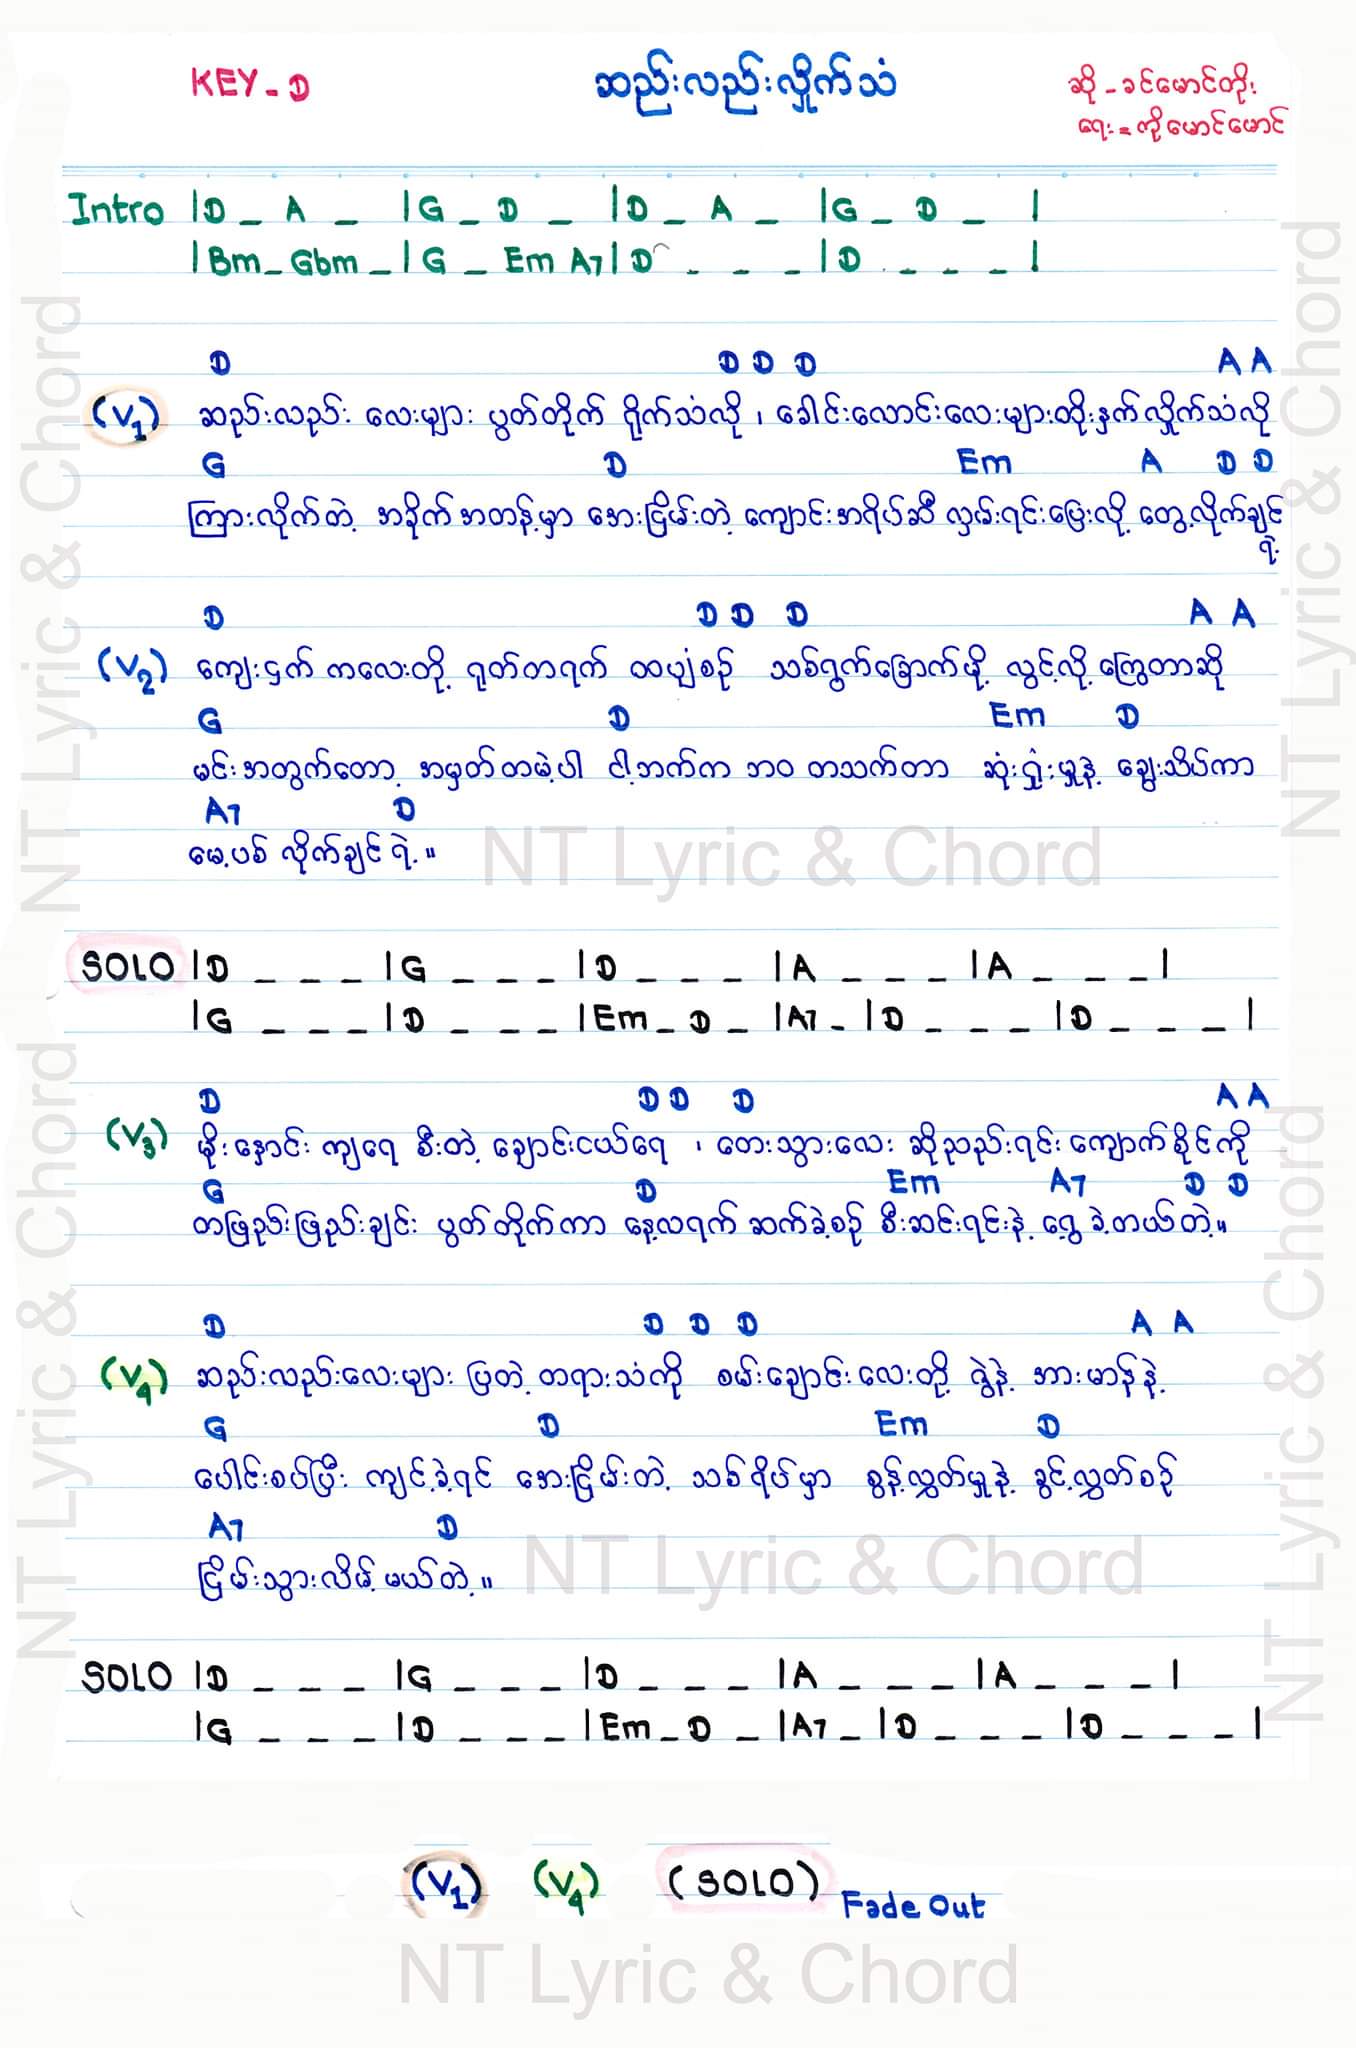 KEY - D
ဆည်းလည်းလှိုက်သံ
ဆို - ခင်မောင်တိုး
ရေး = ကိုမောင်မောင်
Intro |D _ A _ |G _ D _ |D _ A _ |G _ D _ |
|Bm _ Gbm _ |G _ Em A7 |D _ _ _ |D _ _ _ |
D D D D A A
(V1) ဆည်းလည်း လေးများ ပွတ်တိုက် ရိုက်သံလို ၊ ခေါင်းလောင်းလေးများထိုးနှက်လှိုက်သံလို
G D Em A D D
ကြားလိုက်တဲ့ အခိုက်အတန့်မှာ အေးငြိမ်းတဲ့ ကျောင်းအရိပ်ဆီ လှမ်းရင်းပြေးလို့ တွေ့လိုက်ချင်
ရဲ့
D D D D A A
(V2) ကျေးငှက် ကလေးတို့ ရုတ်တရက် ထပျံစဉ် သစ်ရွက်ခြောက်ဖို့ လွင့်လို့ ကြွေတာဆို
G D Em D
မင်းအတွက်တော့ အမှတ်တမဲ့ပါ ငါ့ဘက်က ဘဝ တသက်တာ ဆုံးရှုံးမှုနဲ့ ချွေးသိပ်ကာ
A7 D
မေ့ပစ် လိုက်ချင် ရဲ့ ။
NT Lyric & Chord
SOLO |D _ _ _ |G _ _ _ |D _ _ _ |A _ _ _ |A _ _ _ |
|G _ _ _ |D _ _ _ |Em _ D _ |A7 _ |D _ _ _ |D _ _ _ |
D D D D A A
(V3) မိုးနှောင်း ကျရေ စီးတဲ့ ချောင်းငယ်ရေ ၊ တေးသွားလေး ဆိုညည်းရင်း ကျောက်စိုင်ကို
G D Em A7 D D
တဖြည်းဖြည်းချင်း ပွတ်တိုက်ကာ နေ့လရက် ဆက်ခဲ့စဉ် စီးဆင်းရင်းနဲ့ ရွေ့ ခဲ့တယ်တဲ့ ။
D D D D A A
(V4) ဆည်းလည်းလေးများ ပြတဲ့ တရားသံကို စမ်းချောင်းလေးတို့ ဇွဲနဲ့ အားမာန်နဲ့
G D Em D
ပေါင်းစပ်ပြီး ကျင့်ခဲ့ရင် အေးငြိမ်းတဲ့ သစ်ရိပ်မှာ စွန့်လွှတ်မှုနဲ့ ခွင့်လွှတ်စဉ်
A7 D
ငြိမ်းသွားလိမ့် မယ်တဲ့ ။
NT Lyric & Chord
SOLO |D _ _ _ |G _ _ _ |D _ _ _ |A _ _ _ |A _ _ _ |
|G _ _ _ |D _ _ _ |Em _ D _ |A7 _ |D _ _ _ |D _ _ _ |
(V1) (V4) (SOLO) Fade Out
NT Lyric & Chord
NT Lyric & Chord
NT Lyric & Chord
NT Lyric & Chord
NT Lyric & Chord